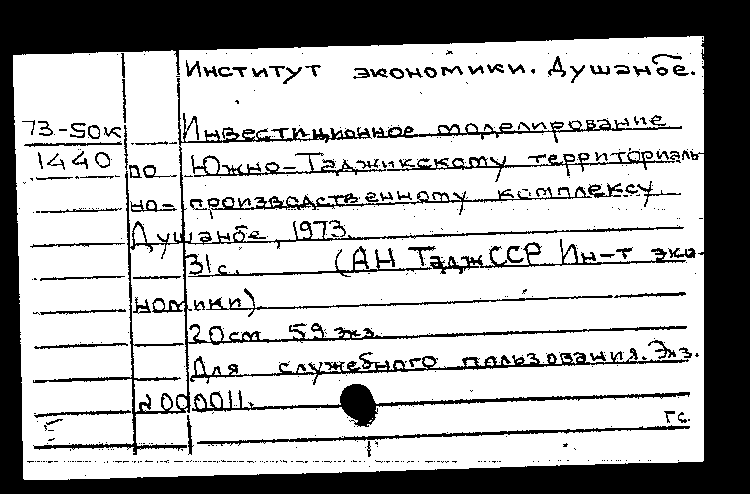 Институт экономики. Душанбе.
73-50к Инвестиционное моделирование
1440 по Южно-Таджикскому территориаль
но-производственному комплексу.
Душанбе, 1973.
31с. (АН ТаджССР Ин-т эко-
номики).
20см. 59 экз.
Для служебного пользования. Экз.
№000011.
гс.